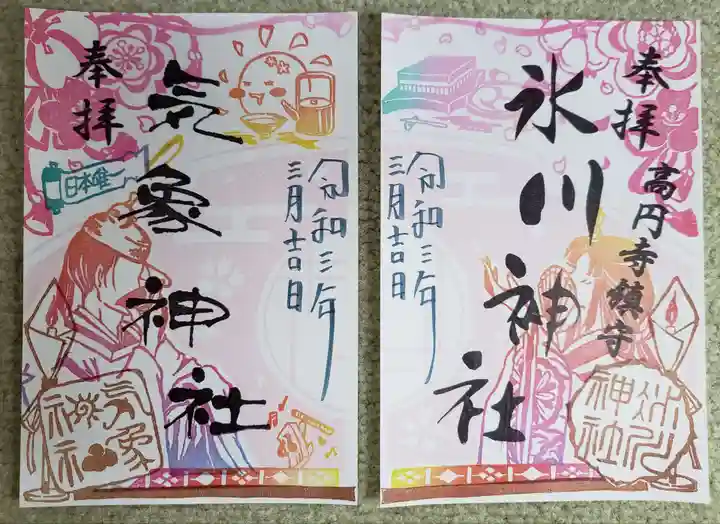 奉拝
高円寺鎮守
氷川神社
令和三年
三月吉日
氷川神社
奉拝
日本唯一
気象神社
令和三年
三月吉日
気象神社